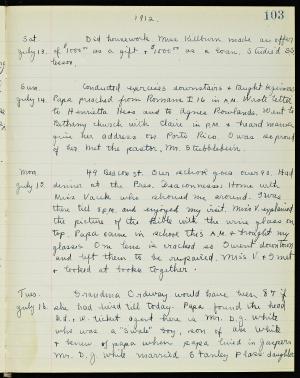 103
1912.
Sat. Did housework. Miss Kilburn made an offer
July 13. of $1000 as a gift + $1000 as a loan. Studied S.S.
lesson.
Sun. Conducted exercises downstairs & taught
July 14. Papa preached from Romans I 16 in A.M. Wrote letter
to Henrietta Hess and to Agnes Rowlands. Went to
Bethany church with Claire in P.M. & heard
give her address on Porto Rico. I was so proud
of her. Met the pastor, Mr. Stubblebein.
Mon. 49 Our school goes over 90. Had
July 15. dinner at the Pres. Deaconesses Home with
Miss Varck who showed me around. I was
there till 3 P.M. and enjoyed my visit. Miss V. explained
the picture of the Bible with the wine glass on
top. Papa came in school this A.M. & brought my
glasses. One lens is cracked so I went downtown
and left them to be repaired. Miss V & I met
& looked at books together.
Tues. Grandma Ordway would have been 87 if
July 16. she had lived till today. Papa found the head
R.R. ticket agent here is Mr. D. J. White
who was a "Swale" boy, son of Abe White
& knew of papa when papa lived in Jaspers
Mr. D. J. White married Stanley P